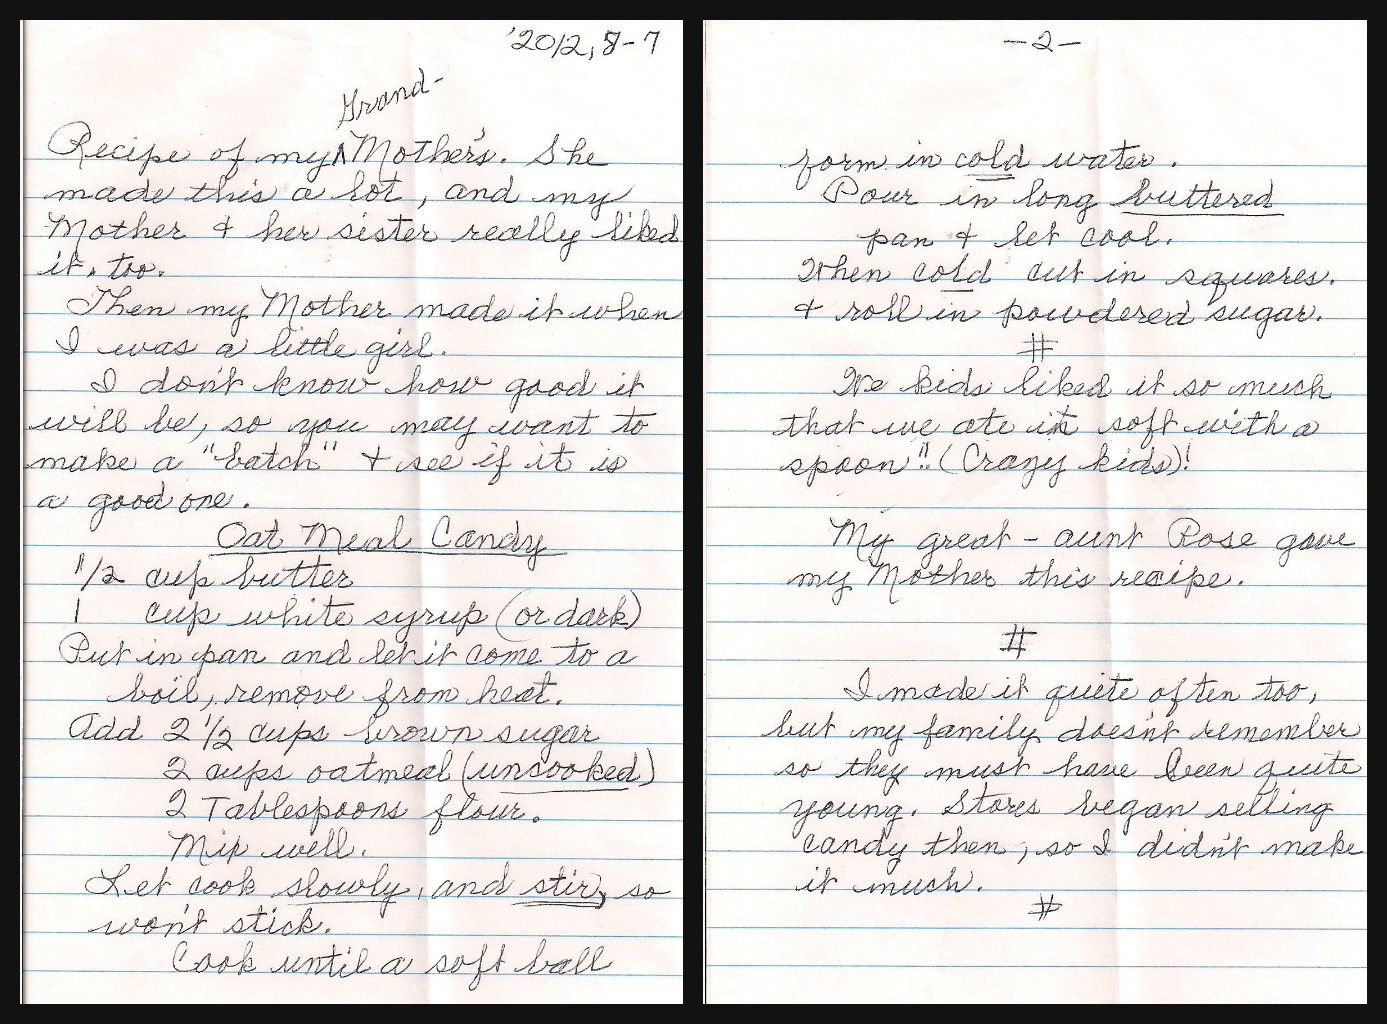 '2012, 8-7
Grand-
Recipe of my ^ Mother's. She
made this a lot, and my
Mother & her sister really liked
it, too.
Then my Mother made it when
I was a little girl.
I don't know how good it
will be, so you may want to
make a "batch" & see if it is
a good one.
Oat Meal Candy
1/2 cup butter
1 cup white syrup (or dark)
Put in pan and let it come to a
boil, remove from heat.
Add 2 1/2 cups brown sugar
2 cups oatmeal (uncooked)
2 Tablespoons flour.
Mix well.
Let cook slowly, and stir, so
won't stick.
Cook until a soft ball
-2-
form in cold water.
Pour in long buttered
pan & let cool.
When cold cut in squares.
& roll in powdered sugar.
#
We kids liked it so much
that we ate it soft with a
spoon!! (Crazy kids)!
My great-aunt Rose gave
my Mother this recipe.
#
I made it quite often too,
but my family doesn't remember
so they must have been quite
young. Stores began selling
candy then, so I didn't make
it much.
#